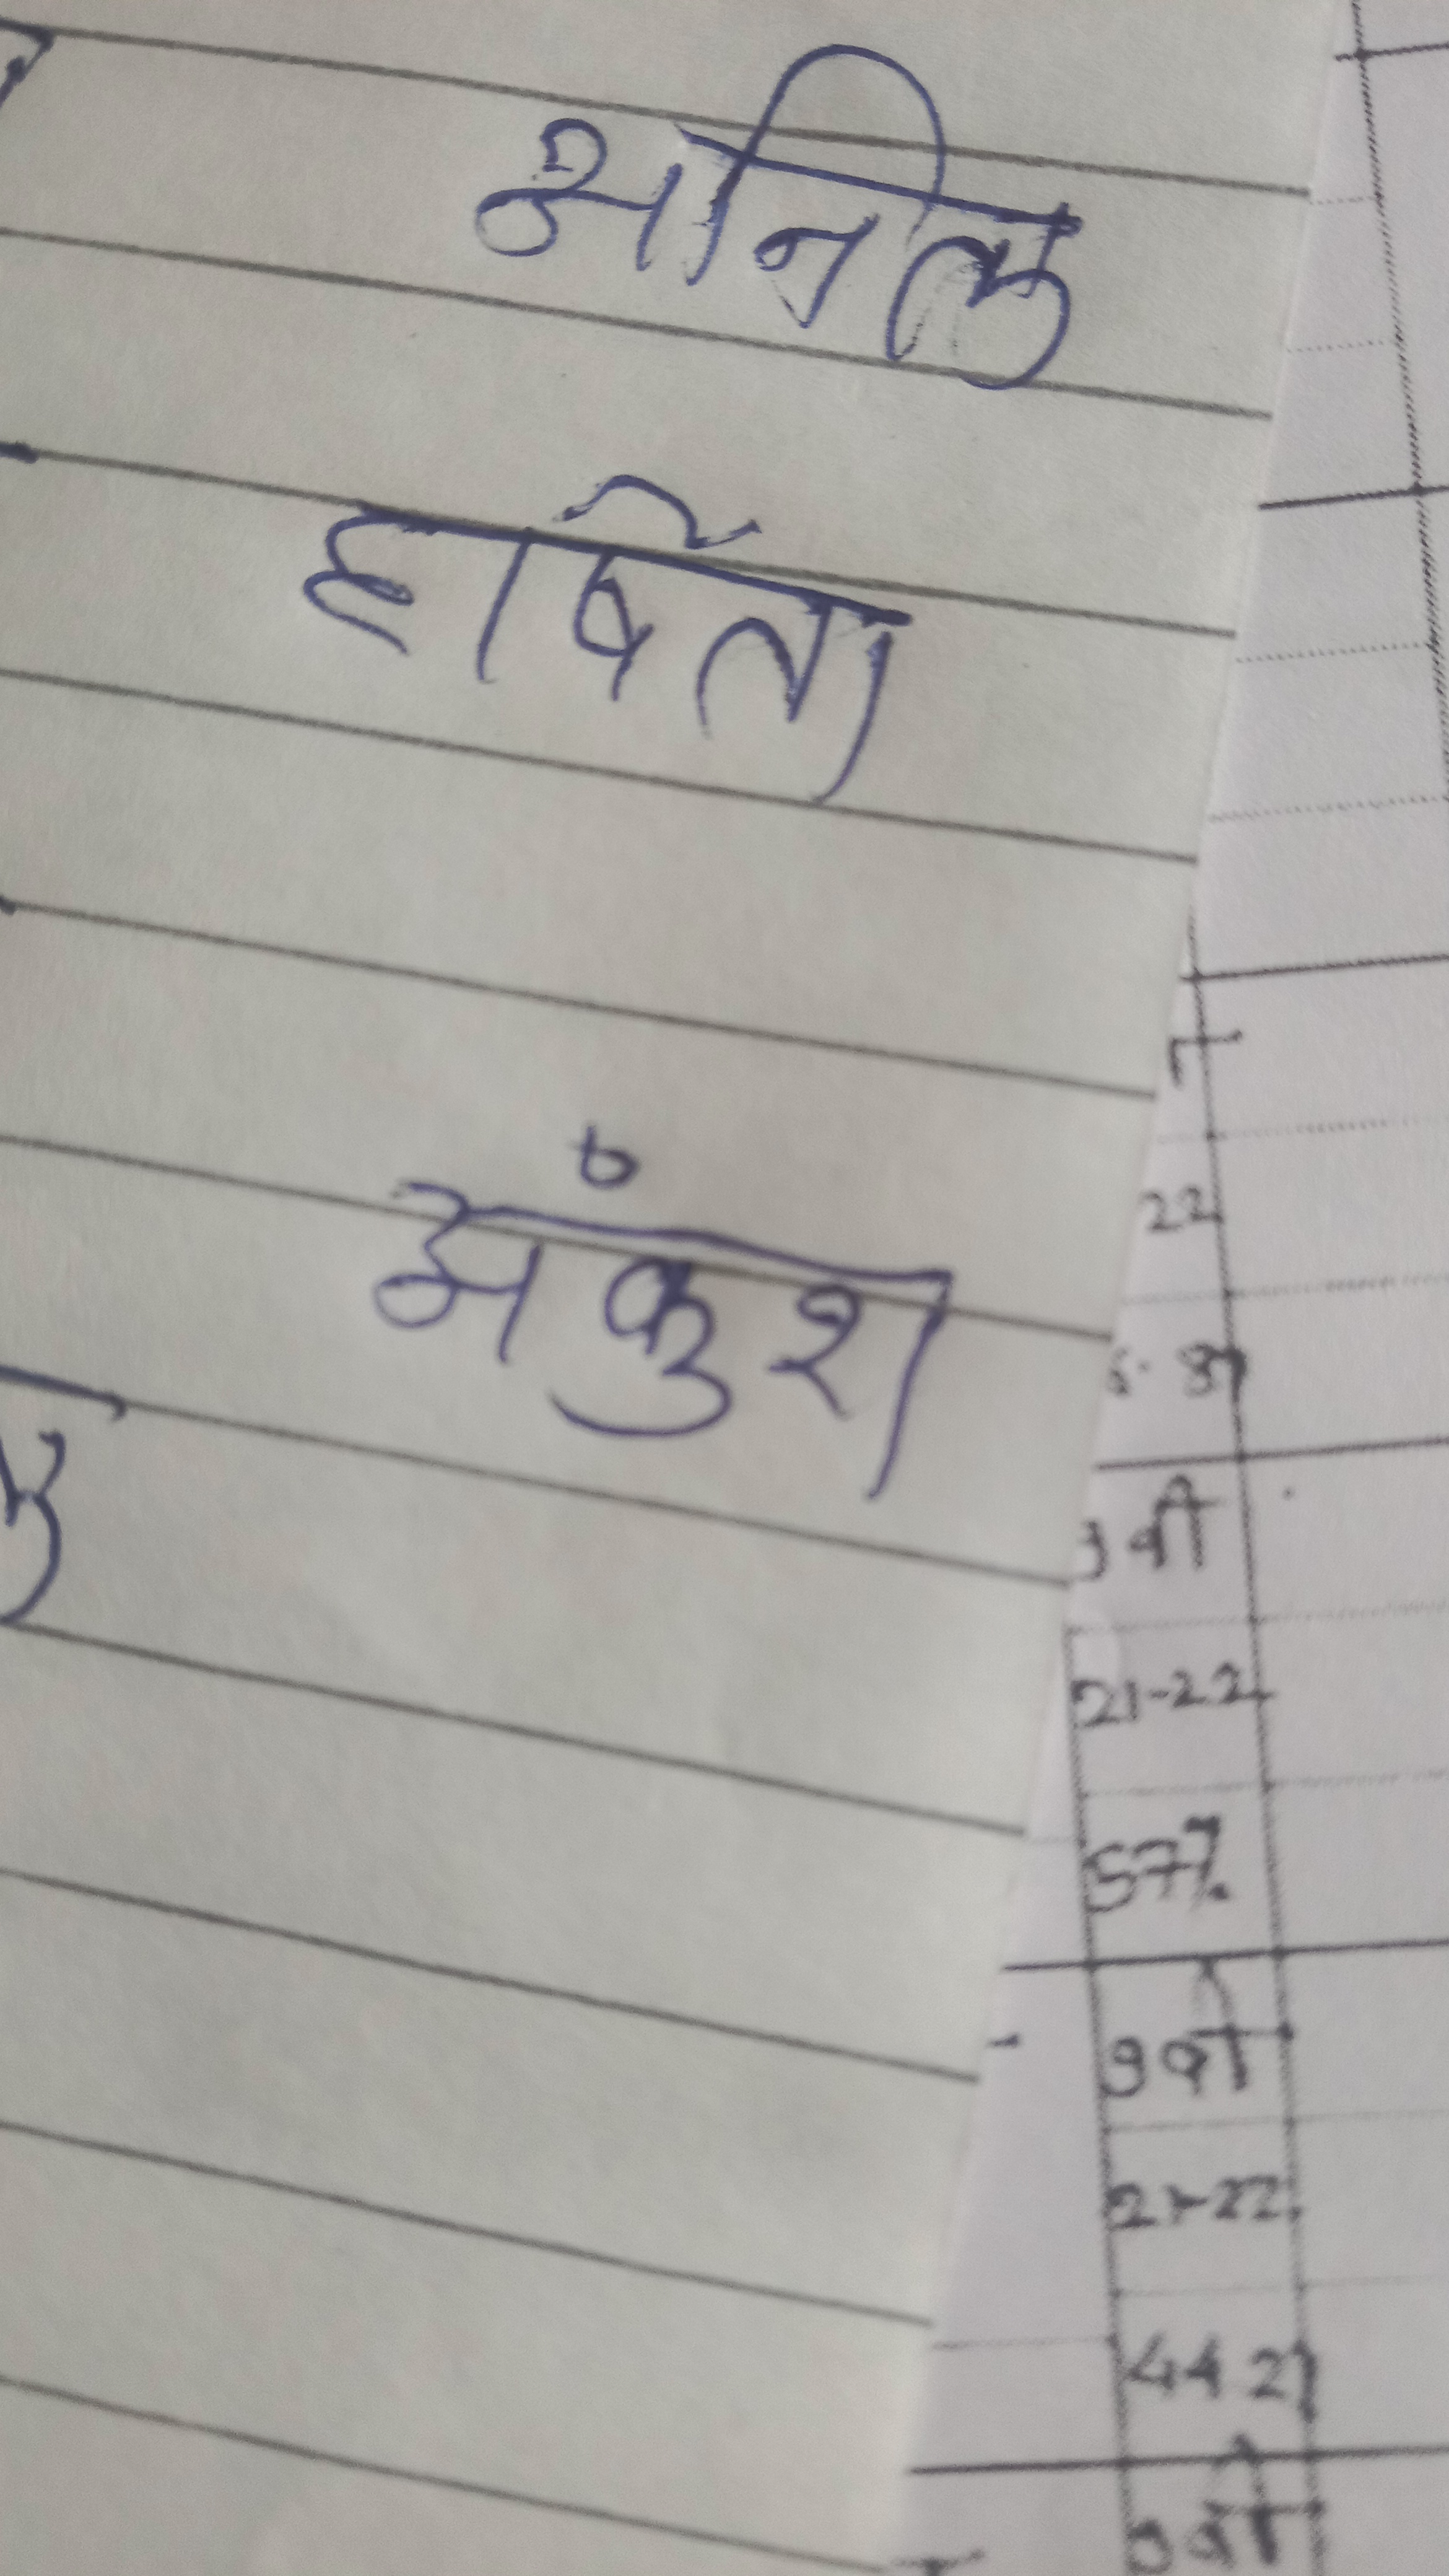 अनिल
हर्षिता
अंकुश
22
9वी
21-22
57%
9वी
21-22
44.21
9वी